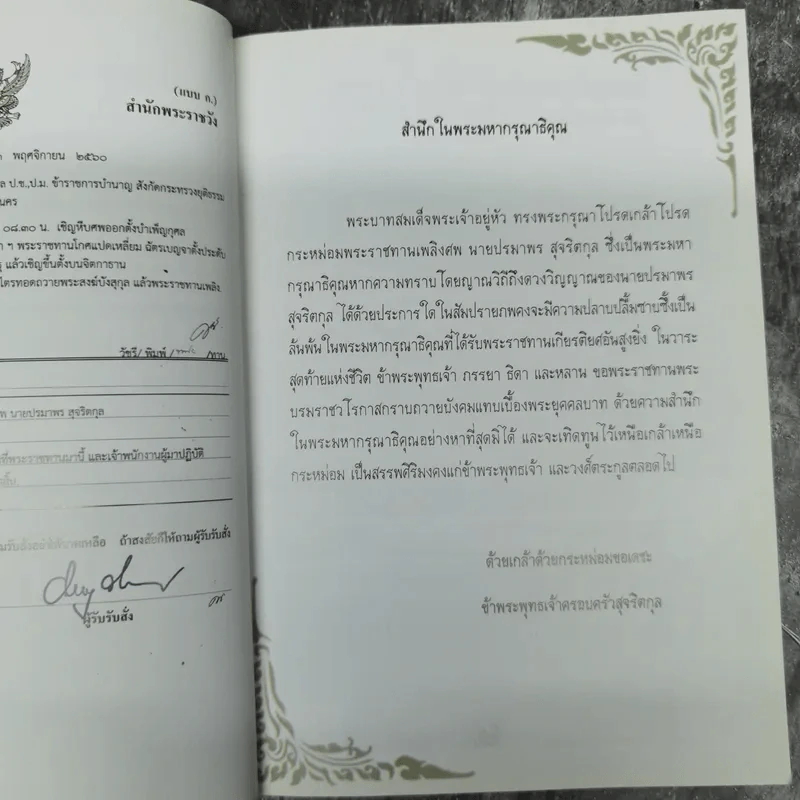 (แบบ ค.)
สำนักพระราชวัง
พฤศจิกายน ๒๕๖๐
ป.ช.,ป.ม. ข้าราชการบำนาญ สังกัดกระทรวงยุติธรรม
นคร
๐๘.๓๐ น. เชิญหีบศพออกตั้งบำเพ็ญกุศล
ฯ พระราชทานโกศแปดเหลี่ยม ฉัตรเบญจาตั้งประดับ
แล้วเชิญขึ้นตั้งบนจิตกาธาน
ไตรทอดถวายพระสงฆ์บังสุกุล แล้วพระราชทานเพลิง
วัชรี/ พิมพ์ / /ทาน
นายปรมาพร สุจริตกุล
ที่พระราชทานมานี้ และเจ้าพนักงานผู้มาปฏิบัติ
ถ้าสงสัยก็ให้ถามผู้รับรับสั่ง
ผู้รับรับสั่ง
สำนึกในพระมหากรุณาธิคุณ
พระบาทสมเด็จพระเจ้าอยู่หัว ทรงพระกรุณาโปรดเกล้าโปรด
กระหม่อมพระราชทานเพลิงศพ นายปรมาพร สุจริตกุล ซึ่งเป็นพระมหา
กรุณาธิคุณหากความทราบโดยญาณวิถีถึงดวงวิญญาณของนายปรมาพร
สุจริตกุล ได้ด้วยประการใดในสัมปรายภพคงจะมีความปลาบปลื้มซาบซึ้งเป็น
ล้นพ้นในพระมหากรุณาธิคุณที่ได้รับพระราชทานเกียรติยศอันสูงยิ่ง ในวาระ
สุดท้ายแห่งชีวิต ข้าพระพุทธเจ้า ภรรยา ธิดา และหลาน ขอพระราชทานพระ
บรมราชวโรกาสกราบถวายบังคมแทบเบื้องพระยุคคลบาท ด้วยความสำนึก
ในพระมหากรุณาธิคุณอย่างหาที่สุดมิได้ และจะเทิดทูนไว้เหนือเกล้าเหนือ
กระหม่อม เป็นสรรพศิริมงคงแก่ข้าพระพุทธเจ้า และวงศ์ตระกูลตลอดไป
ด้วยเกล้าด้วยกระหม่อมขอเดชะ
ข้าพระพุทธเจ้าครอบครัวสุจริตกุล